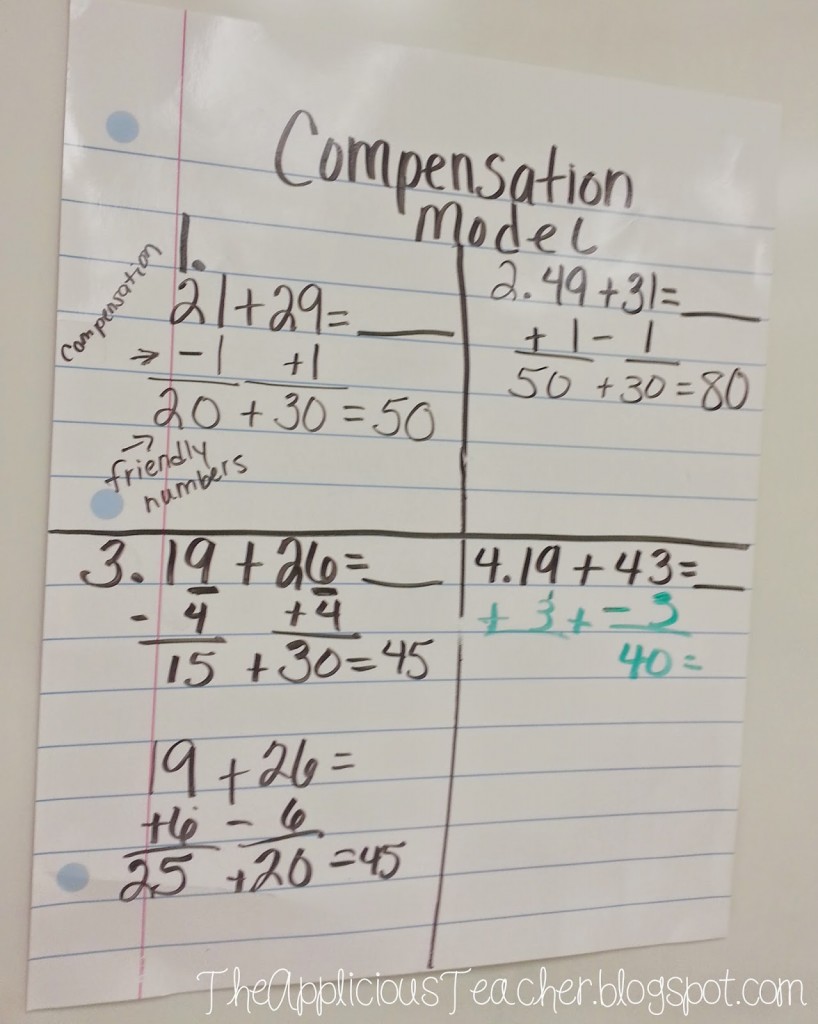 Compensation
Model
1.
21+29=___
compensation
→ -1 +1
20 + 30 = 50
→
friendly
numbers
2. 49 +31=___
+ 1 - 1
50 +30 = 80
3. 19 + 26=___
- 4 +4
15 + 30 = 45
19 + 26 =
+6 - 6
25 +20 =45
4. 19 + 43=___
+ 3 + - 3
40 =
TheAppliciousTeacher.blogspot.com